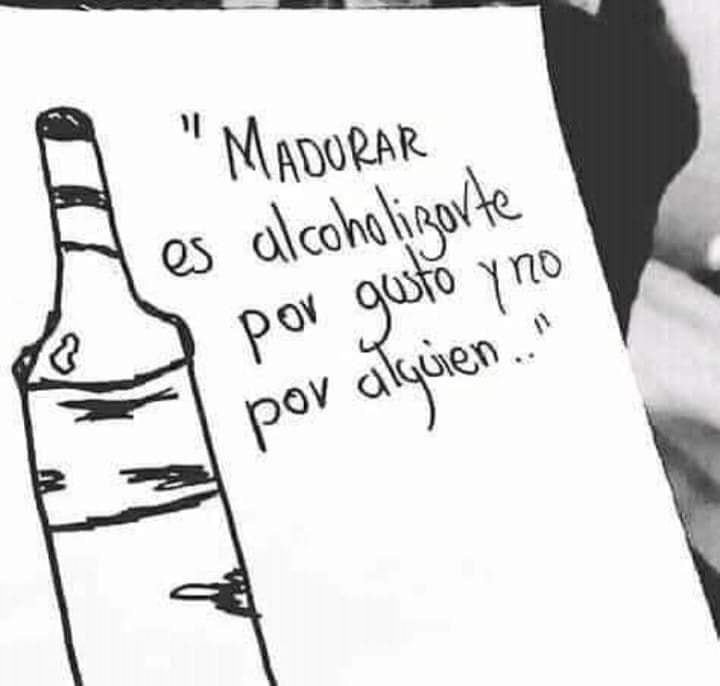 "MADURAR
es alcoholizarte
por gusto y no
por alguien.."